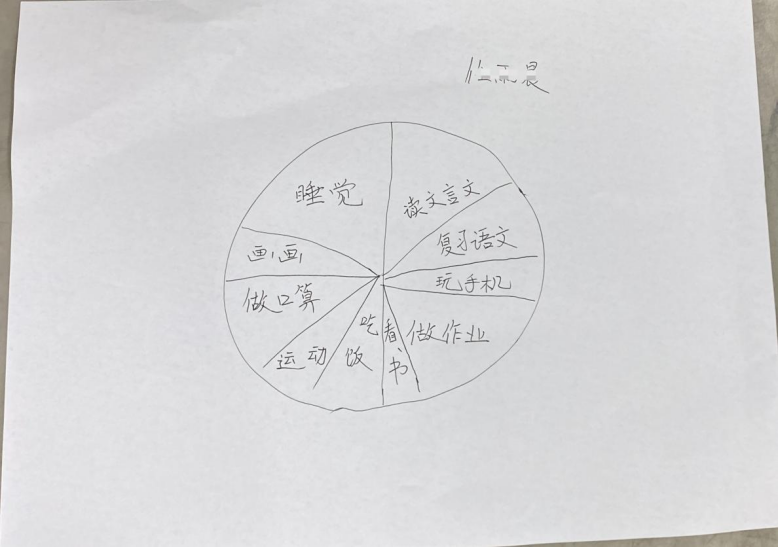 读文言文
复习语文
玩手机
做作业
看书
吃饭
运动
做口算
画画
睡觉